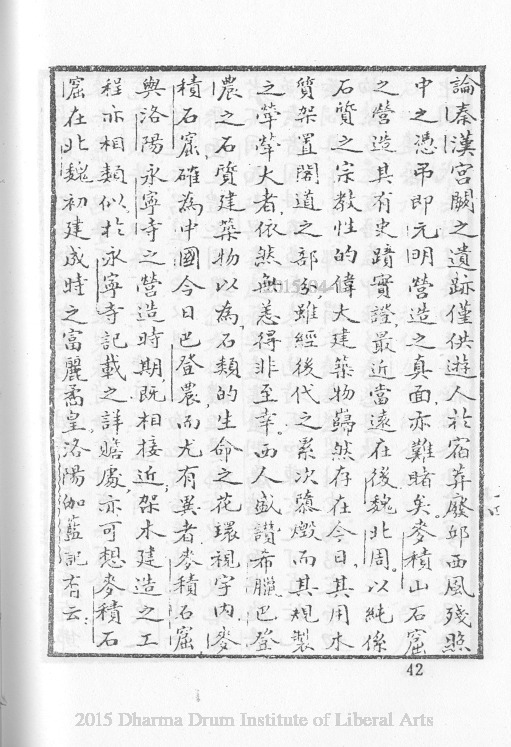 論秦漢宮闕之遺跡僅供遊人於宿莽廢邱西風殘照
中之憑弔即元明營造之真面亦難睹矣。麥積山石窟
之營造其有史蹟實證，最近當遠在後魏北周。以純係
石質之宗教性的偉大建築物巋然存在今日，其用木
質架置閣道之部分，雖經後代之累次燬，而其規製
之犖犖大者，依然無恙得非至幸。西人盛讚希臘巴登
農之石質建築物以為，石類的生命之花環視宇內，麥
積石窟，確為中國今日巴登農，而尤有異者，麥積石窟
與洛陽永寧寺之營造時期，既相接近，架木建造之工
程亦相類似。於永寧寺記載之詳贍處，亦可想麥積石
窟在北魏初建成時之富麗矞皇，洛陽伽藍記有云：
42
2015 Dharma Drum Institute of Liberal Arts